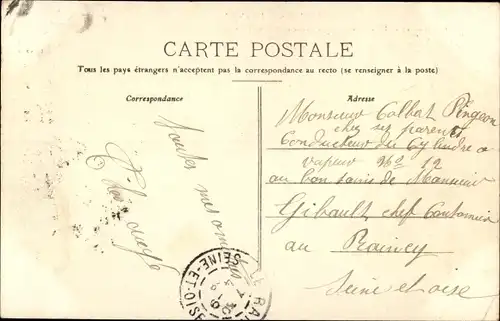 CARTE POSTALE
Tous les pays étrangers n'acceptent pas la correspondance au recto (se renseigner à la poste)
Correspondance
Adresse
Toutes mes amitiés
Monsieur Colbert Pingeon
chez ses parents
Conducteur du Cylindre a
vapeur 12
au bon soins de Monsieur
Gibault chef Cantonnier
au Raincy
Seine et oise
SEINE-ET-OISE